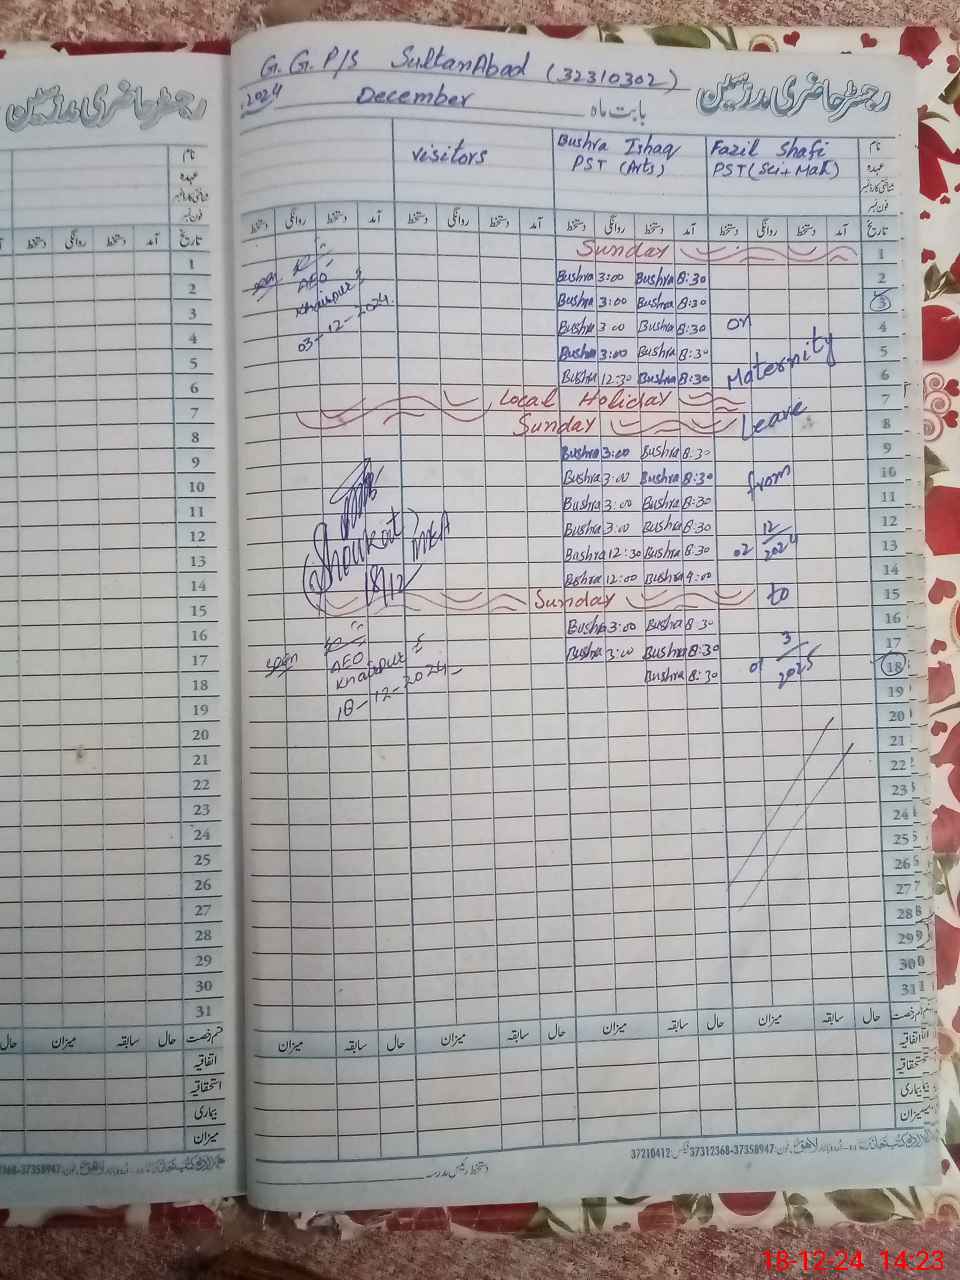 G. G. P/S SultanAbad (32310302)
رجسٹر حاضری مدرسین
2024 December بابت ماہ
رجسٹر حاضری مدرسین
visitors
Bushra Ishaq
PST (Arts)
Fazil Shafi
PST (Sci+Math)
نام
عہدہ
شناختی کارڈ نمبر
فون نمبر
تاریخ آمد دستخط روانگی دستخط آمد دستخط روانگی دستخط آمد دستخط روانگی دستخط آمد دستخط روانگی دستخط
Sunday 1
Bushra 3:00 Bushra 8:30 2
Bushra 3:00 Bushra 8:30 3
Bushra 3:00 Bushra 8:30 4
Bushra 3:00 Bushra 8:30 5
Bushra 12:30 Bushra 8:30 6
Local Holiday 7
Sunday 8
Bushra 3:00 Bushra 8:30 9
Bushra 3:00 Bushra 8:30 10
Bushra 3:00 Bushra 8:30 11
Bushra 3:00 Bushra 8:30 12
Bushra 12:30 Bushra 8:30 13
Bushra 12:00 Bushra 9:00 14
Sunday 15
Bushra 3:00 Bushra 8:30 16
Bushra 3:00 Bushra 8:30 17
Bushra 8:30 18
19
20
21
22
23
24
25
26
27
28
29
30
31
on
Maternity
Leave
from
02 12/2024
to
01 3/2025
AEO
Khairpur
03-12-2024
(Shoukat) MEA
18/12
AEO
Khairpur
18-12-2024
حال سابقہ میزان حال سابقہ میزان حال سابقہ میزان حال سابقہ میزان
دستخط رئیس مدرسہ
37210412 فیکس: 37312368-37358947 فون:
نام
عہدہ
شناختی کارڈ نمبر
فون نمبر
تاریخ آمد دستخط روانگی دستخط
1
2
3
4
5
6
7
8
9
10
11
12
13
14
15
16
17
18
19
20
21
22
23
24
25
26
27
28
29
30
31
قسم رخصت حال سابقہ میزان حال
اتفاقیہ
استحقاقیہ
بیماری
میزان
18-12-24 14:23